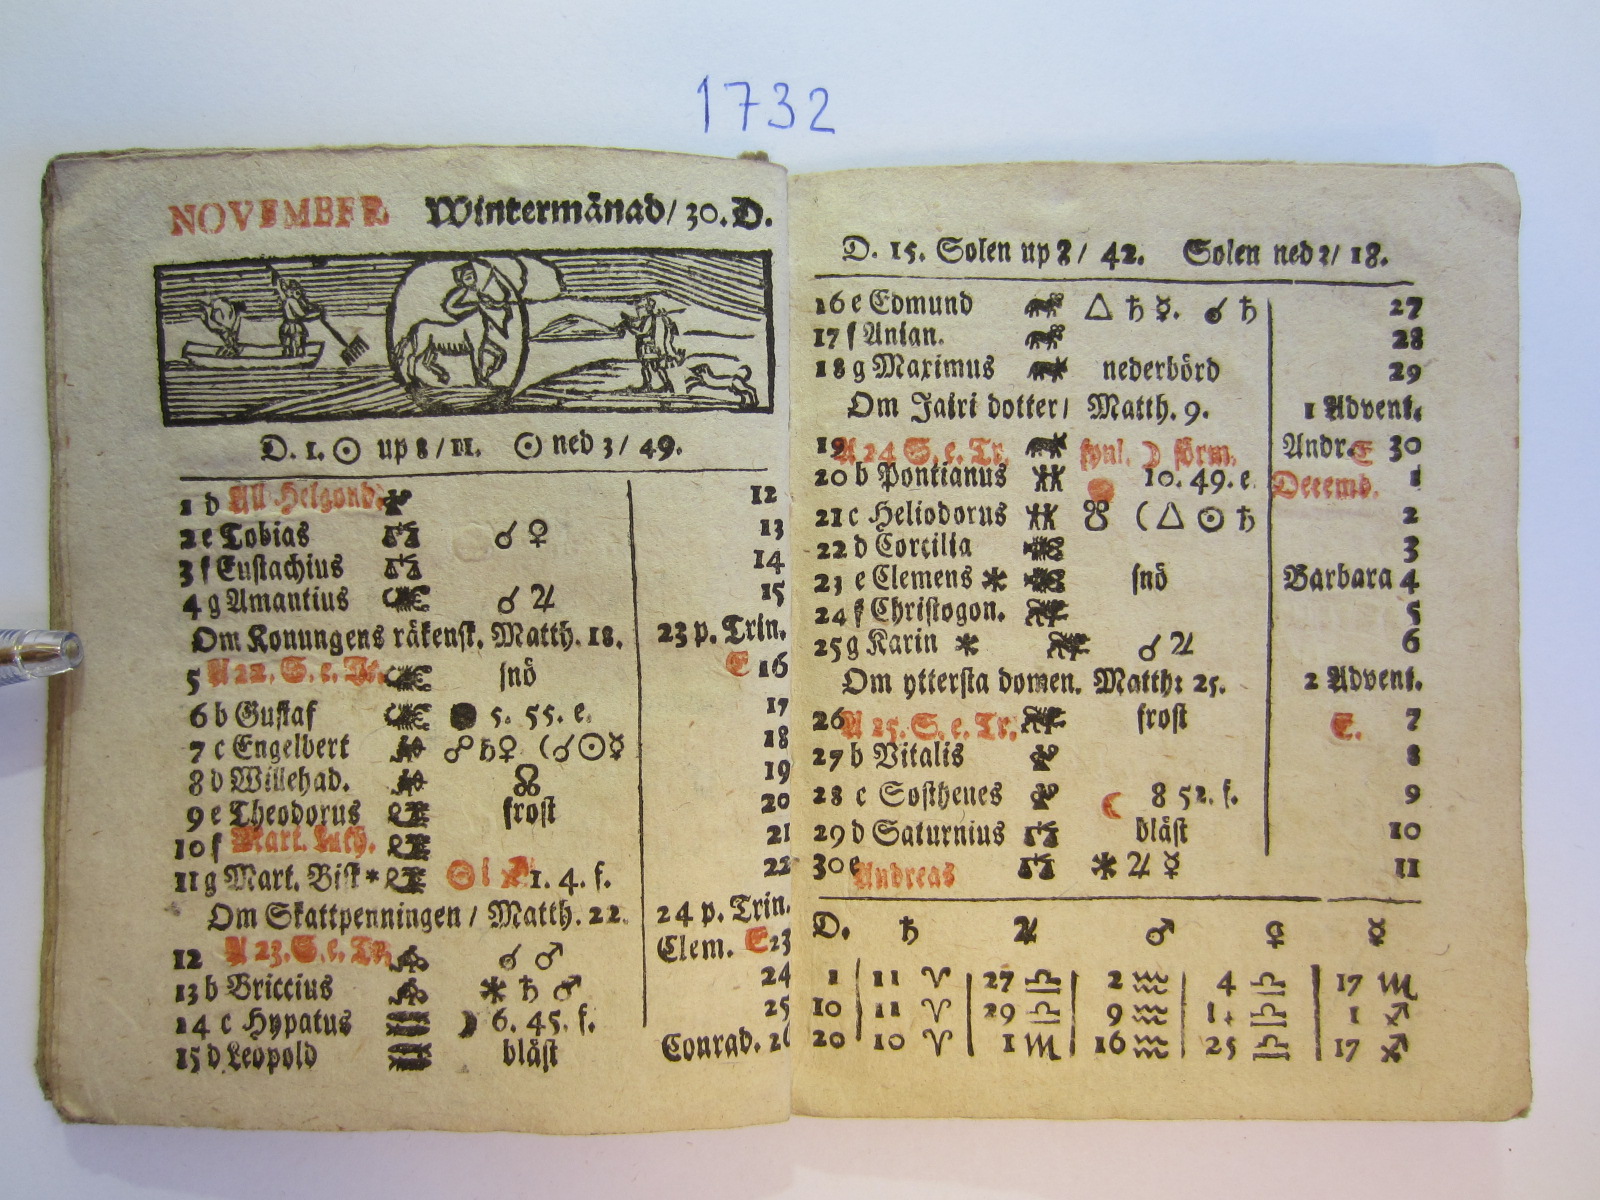 1732
NOVEMBER Wintermånad/ 30. D.
D. 1. ☉ up 8/ 11. ☉ ned 3/ 49.
1 d All Helgond. 12
2 e Tobias ☌ ♀ 13
3 f Eustachius 14
4 g Amantius ☌ ♃ 15
Om Konungens räkensk. Matth. 18. 23 p. Trin.
5 A 22. S. e. Tr. snö E 16
6 b Gustaf ● 5. 55. e. 17
7 c Engelbert ☍ ♄ ♀ (☌ ☉ ☿ 18
8 d Willehad. ☊ 19
9 e Theodorus frost 20
10 f Mart. Luth. 21
11 g Mart. Bisk * ☉ i ♐ 1. 4. f. 22
Om Skattpenningen/ Matth. 22. 24 p. Trin.
12 A 23. S. e. Tr. ☌ ♂ Clem. E 23
13 b Briccius ⚹ ♄ ♂ 24
14 c Hypatus ☽ 6. 45. f. 25
15 d Leopold blåst Conrad. 26
D. 15. Solen up 8/ 42. Solen ned 3/ 18.
16 e Edmund △ ♄ ☿. ☌ ♄ 27
17 f Anian. 28
18 g Maximus nederbörd 29
Om Jairi dotter/ Matth. 9. 1 Advent.
19 A 24 S. e. Tr. synl. ☽ förm. Andr. E 30
20 b Pontianus 10. 49. e. Decemb. 1
21 c Heliodorus ☋ (△ ☉ ♄ 2
22 d Corcilia 3
23 e Clemens * snö Barbara 4
24 f Christogon. 5
25 g Karin * ☌ ♃ 6
Om yttersta domen. Matth: 25. 2 Advent.
26 A 25. S. e. Tr. frost E. 7
27 b Vitalis 8
28 c Sosthenes ☾ 8 52. f. 9
29 d Saturnius blåst 10
30 e Andreas ⚹ ♃ ☿ 11
D. ♄ ♃ ♂ ♀ ☿
1 11 ♈ 27 ♎ 2 ♒ 4 ♎ 17 ♏
10 11 ♈ 29 ♎ 9 ♒ ♎ 1 ♐
20 10 ♈ 1 ♏ 16 ♒ 25 ♎ 17 ♐